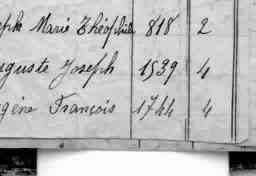 eph Marie Théophile 818 2
uguste Joseph 1539 4
gène François 1744 4